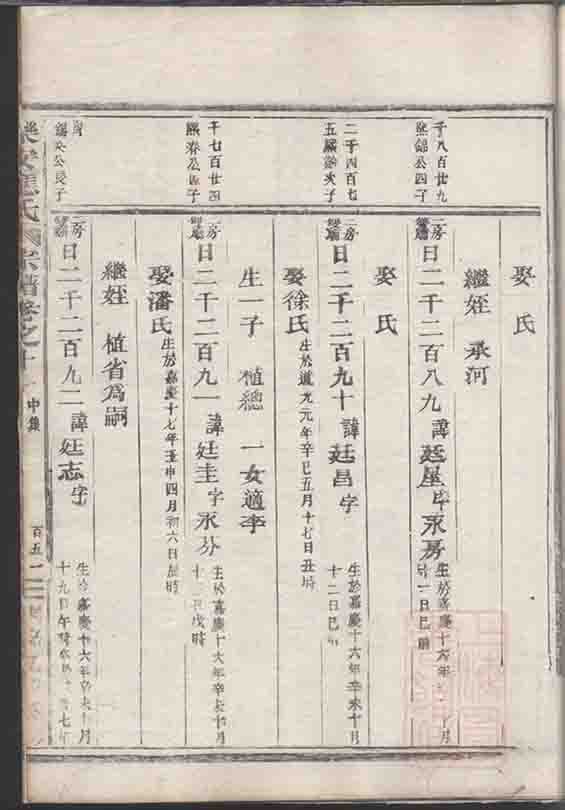 娶氏
繼姪 承河
千八百廿九
熙錦公四子
二房
日二千二百八九 諱廷星字永房 生於嘉慶十六年 月
一日巳時
娶氏
二千四百七
五 次子
二房
日二千二百九十 諱廷昌字 生於嘉慶十六年辛未十月
十二日巳時
娶徐氏 生於道光元年辛巳五月十七日丑時
生一子 植總 一女適李
千七百廿四
熙春公 子
二房
日二千二百九一 諱廷圭字永芬 生於嘉慶十六年辛未十月
十 日戌時
娶潘氏 生於嘉慶十七年壬申四月初六日辰時
繼姪 植省爲嗣
錦文公長子
二房
日二千二百九二 諱廷志字 生於嘉慶十六年辛未十月
十九日午時 七年
氏 宗譜卷之十
中集
百五